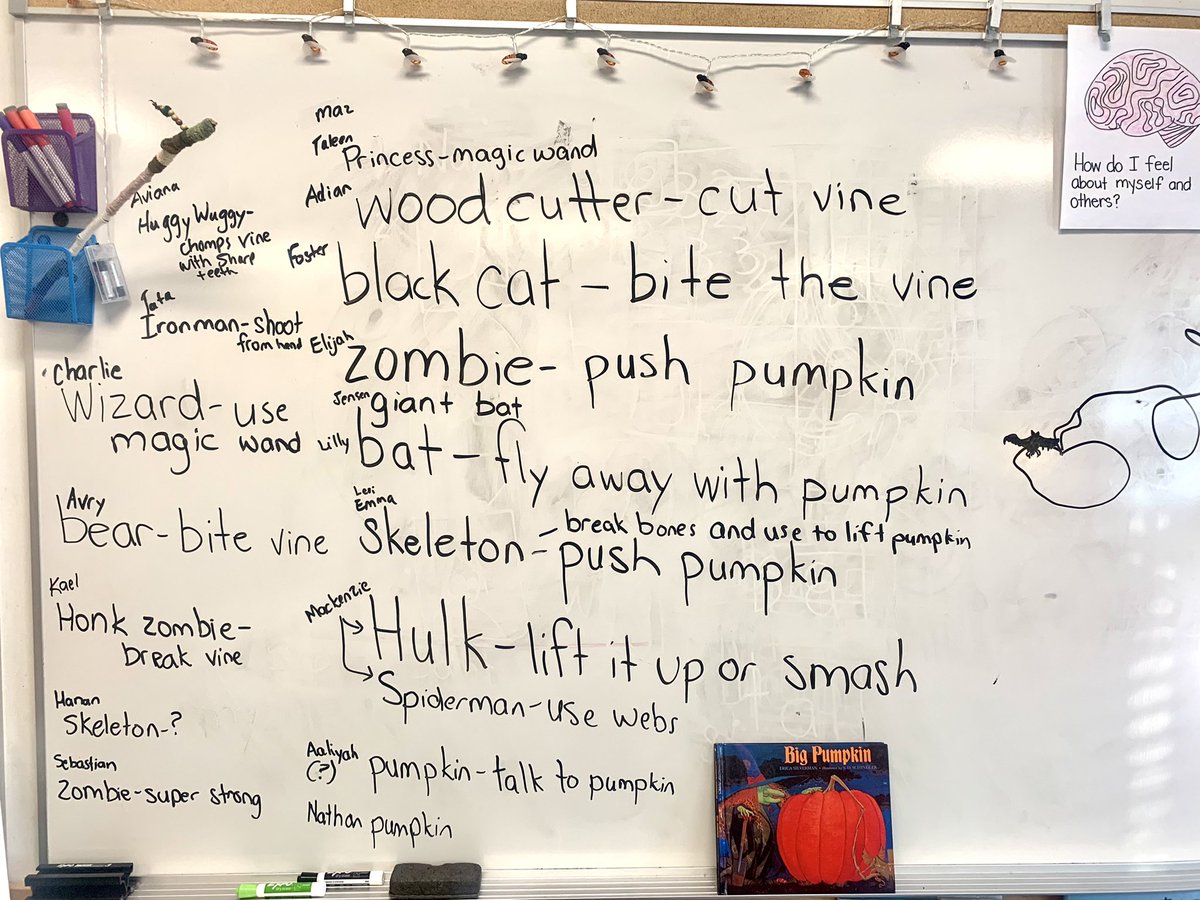 Maz
Taleen
Princess-magic wand
Adrian
wood cutter - cut vine
Foster
black cat - bite the vine
Elijah
zombie- push pumpkin
Jensen
giant bat
Lilly
bat - fly away with pumpkin
Leri
Emma
Skeleton - break bones and use to lift pumpkin
push pumpkin
Mackenzie
Hulk - lift it up or smash
Spiderman-use webs
Aaliyah
(?) pumpkin-talk to pumpkin
Nathan pumpkin
Aviana
Huggy Wuggy-
chomps vine
with sharp
teeth
Tata
Ironman-shoot
from hand
charlie
Wizard- use
magic wand
Avry
bear- bite vine
Kael
Honk zombie-
break vine
Hanan
Skeleton-?
Sebastian
Zombie-super strong
How do I feel
about myself and
others?
Big Pumpkin
ERICA SILVERMAN